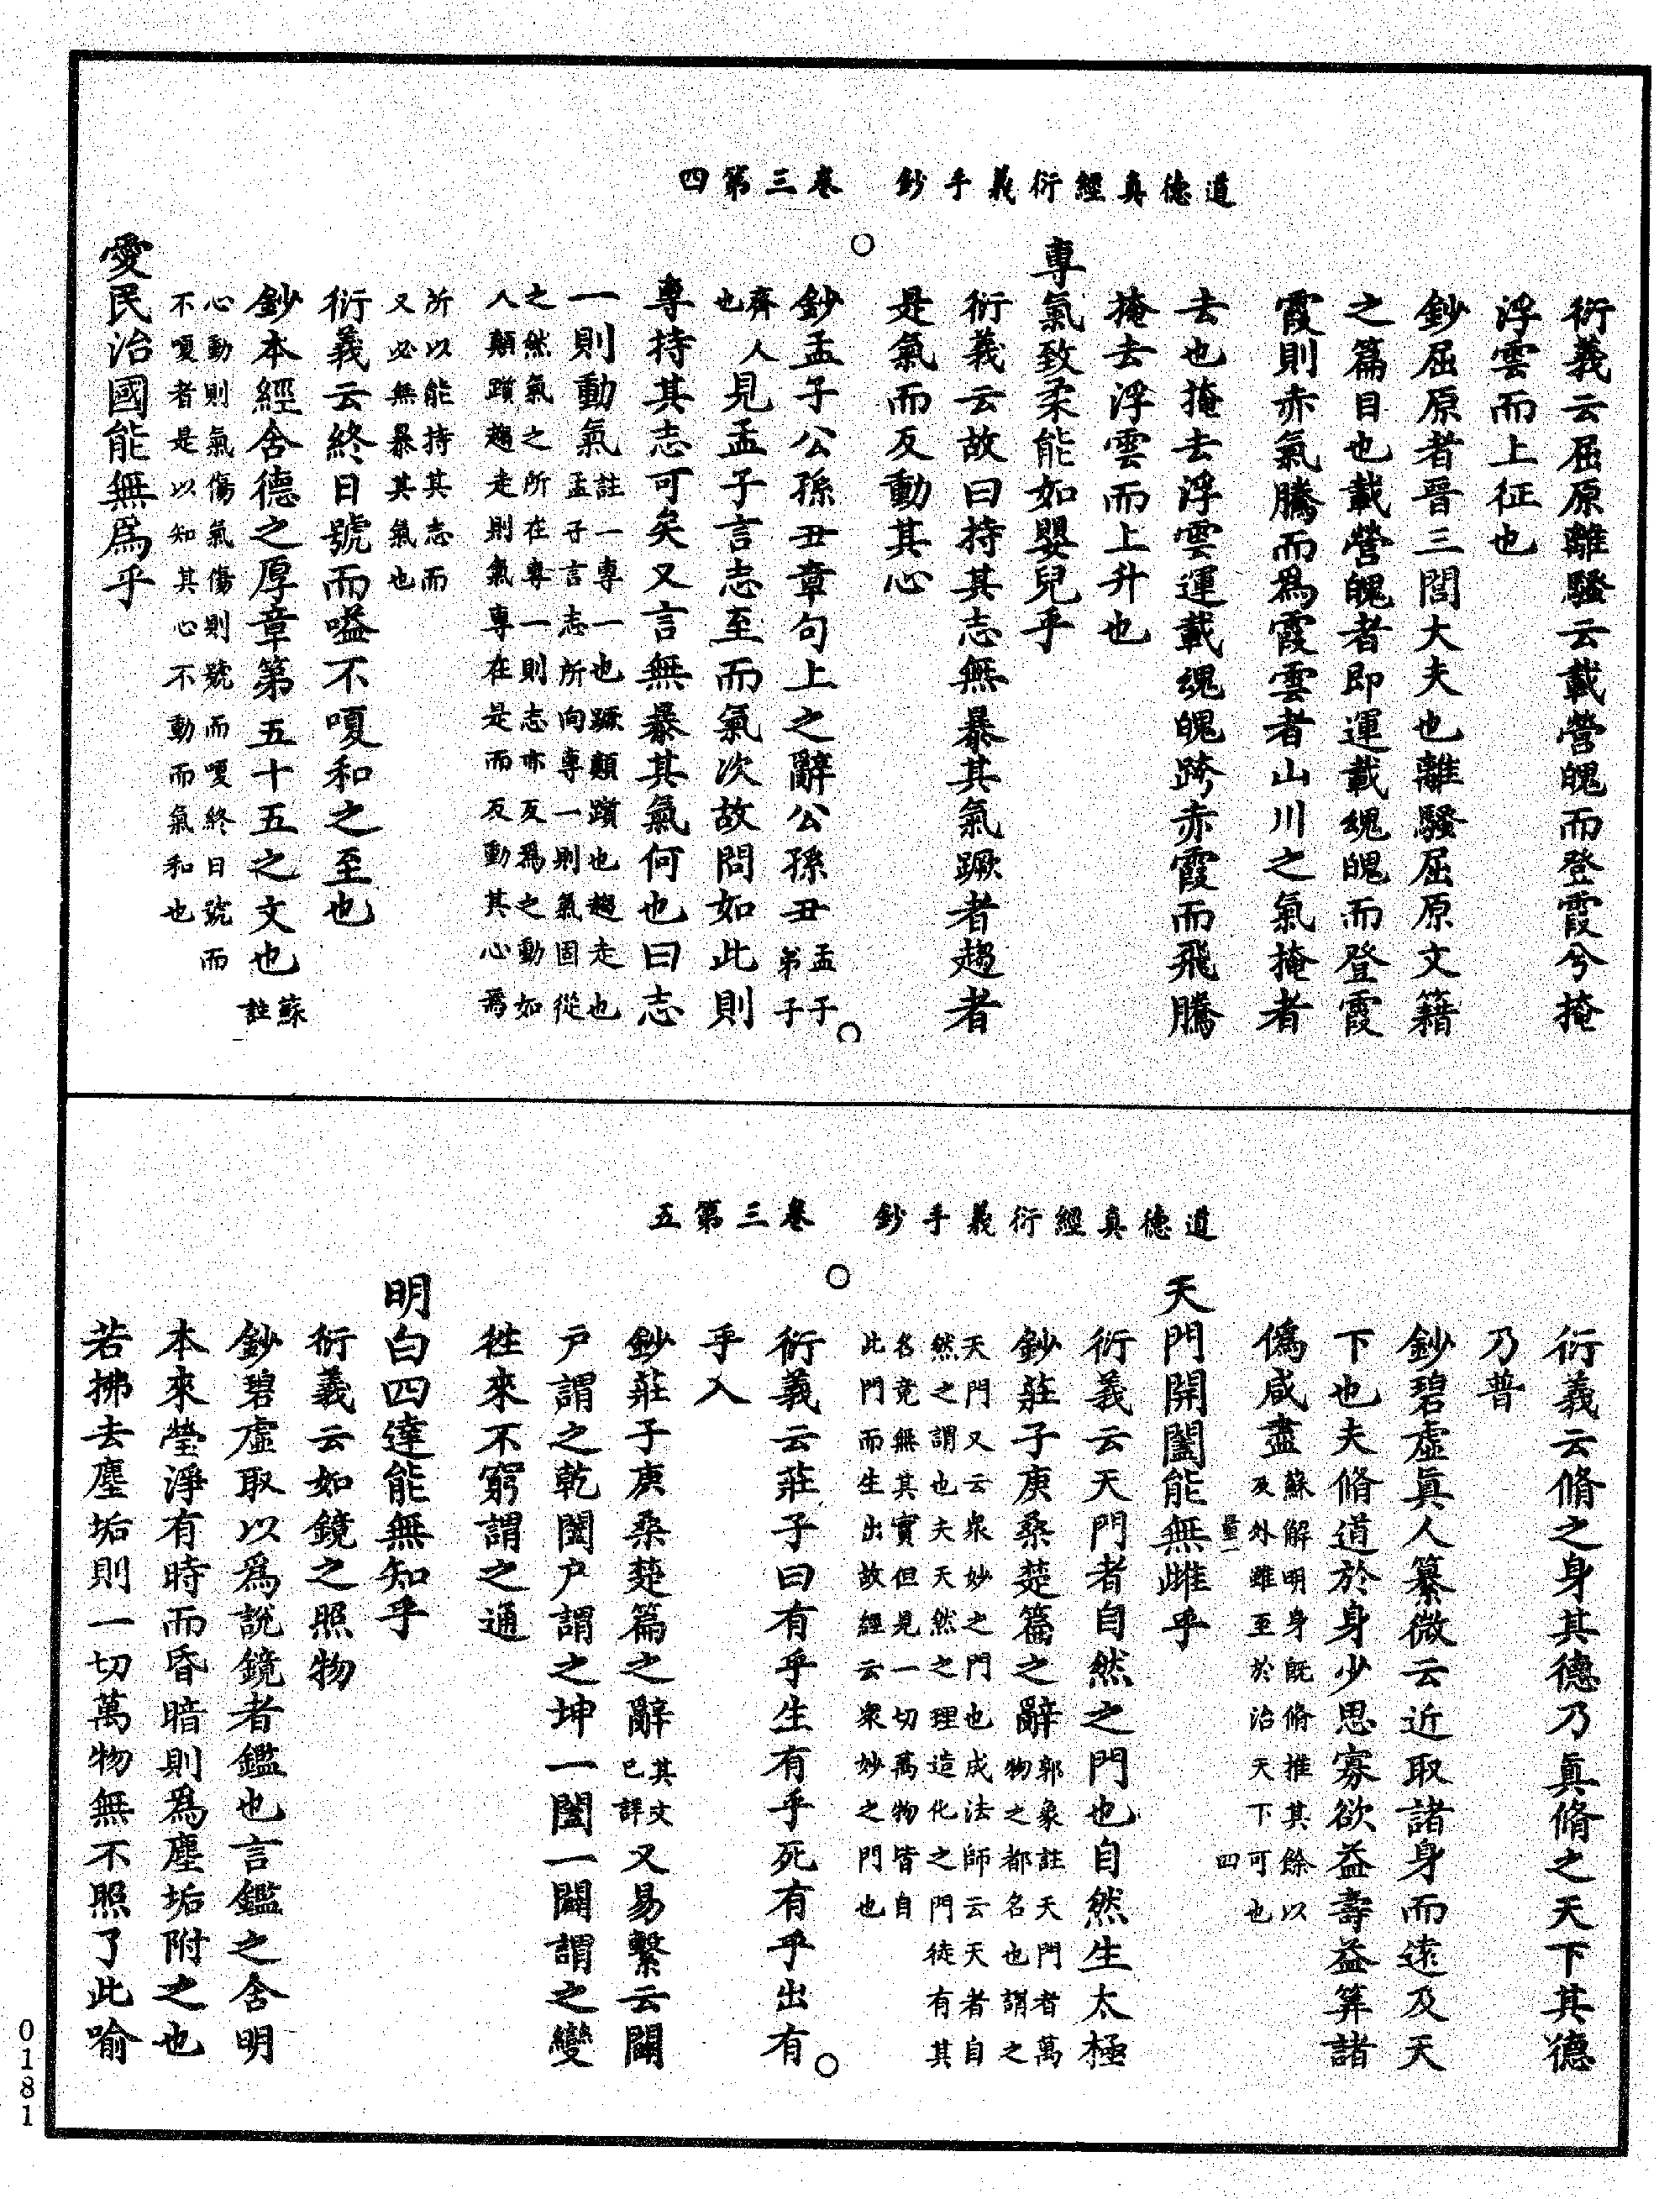 道德真經衍義手鈔　卷三第四
衍義云屈原離騷云載營魄而登霞兮掩
浮雲而上征也
鈔屈原者晉三閭大夫也離騷屈原文籍
之篇目也載營魄者即運載魂魄而登霞
霞則赤氣騰而爲霞雲者山川之氣掩者
去也掩去浮雲運載魂魄跨赤霞而飛騰
掩去浮雲而上升也
專氣致柔能如嬰兒乎
衍義云故曰持其志無暴其氣蹶者趨者
是氣而反動其心
鈔孟子公孫丑章句上之辭公孫丑孟子
弟子
齊人
也見孟子言志至而氣次故問如此則
專持其志可矣又言無暴其氣何也曰志
一則動氣註一專一也蹶顛躓也趨走也
孟子言志所向專一則氣固從
之然氣之所在專一則志亦反爲之動如
人顛躓趨走則氣專在是而反動其心焉
所以能持其志而
又必無暴其氣也
衍義云終日號而嗌不嗄和之至也
鈔本經含德之厚章第五十五之文也蘇
註
心動則氣傷氣傷則號而嗄終日號而
不嗄者是以知其心不動而氣和也
愛民治國能無爲乎
道德真經衍義手鈔　卷三第五
衍義云脩之身其德乃眞脩之天下其德
乃普
鈔碧虛眞人纂微云近取諸身而遠及天
下也夫脩道於身少思寡欲益壽益算諸
僞咸盡蘇解明身既脩推其餘以
及外雖至於治天下可也
量一　四
天門開闔能無雌乎
衍義云天門者自然之門也自然生太極
鈔莊子庚桑楚篇之辭郭象註天門者萬
物之都名也謂之
天門又云眾妙之門也成法師云天者自
然之謂也夫天然之理造化之門徒有其
名竟無其實但見一切萬物皆自
此門而生出故經云眾妙之門也
衍義云莊子曰有乎生有乎死有乎出有
乎入
鈔莊子庚桑楚篇之辭其文
已詳又易繫云闢
戶謂之乾闔戶謂之坤一闔一闢謂之變
往來不窮謂之通
明白四達能無知乎
衍義云如鏡之照物
鈔碧虛取以爲說鏡者鑑也言鑑之含明
本來瑩淨有時而昏暗則爲塵垢附之也
若拂去塵垢則一切萬物無不照了此喻
0181